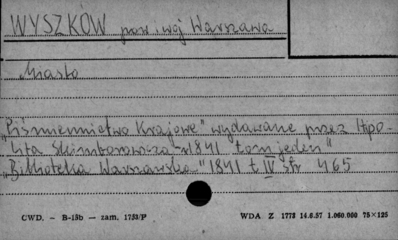 WYSZKÓW pow. i woj. Warszawa
Miasto
„Piśmiennictwo Krajowe" wydawane przez Hipo-
lita Skimborowicza 1841 tom jeden"
„Biblioteka Warszawska" 1841 t. IV str 465
CWD. — B-13b — zam. 1753/P WDA Z 1778 14.6.57 1.060.000 75×125